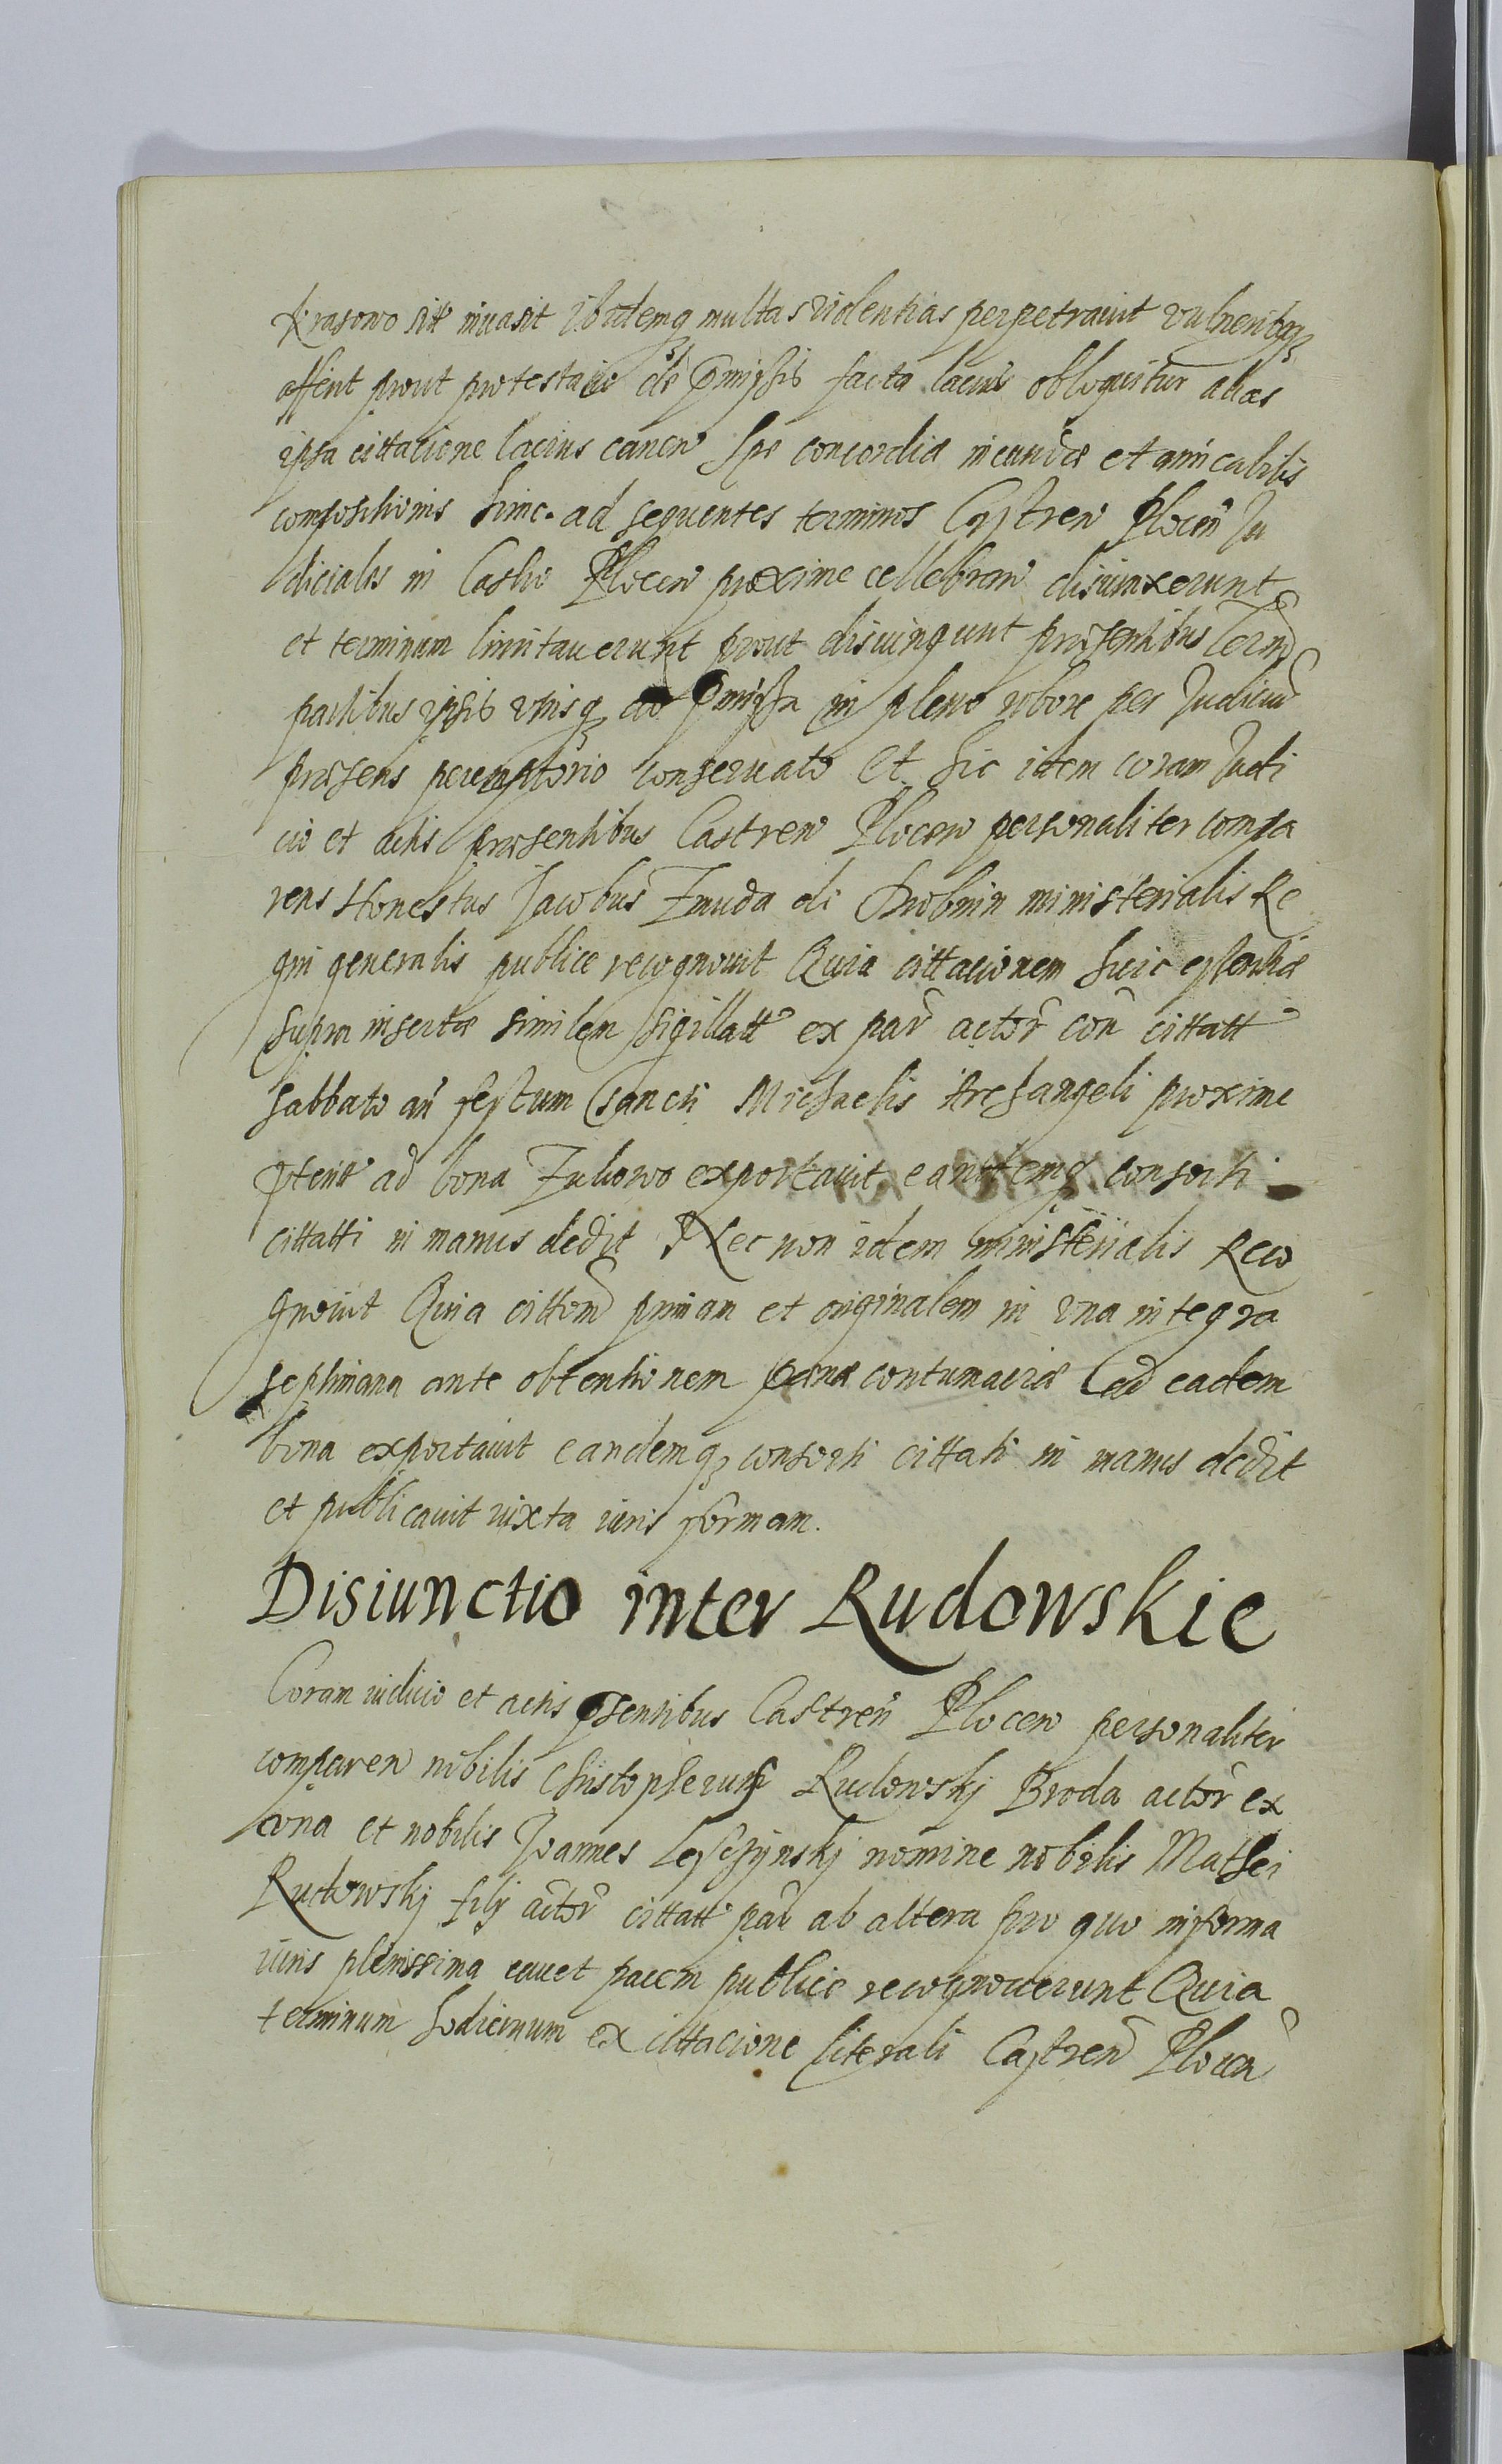 Krasowo sit inuasit ibidemq multas violentias perpetrauit vulneribq
affecit prout protestatio de pmissis facta lacius obloquitur alias
ipsa cittatione lacius canen spe concordiæ ineundæ et amicabilis
compositionis hinc ad sequentes terminos Castren Plocen Ju
diciales in Castro Plocen proxime cellebran disiunxerunt
et terminum limitauerunt prout disiungunt præsentibus Term
partibus ipsis vtrisq ad pmissa in pleno robore per Judicium
præsens peremptorio conseruato Et sic idem coram Judi
cio et actis præsentibus Castren Plocen personaliter compa
rens Honestus Jacobus Zmuda de Drobnin ministerialis Re
gni generalis publice recognouit Quia cittacionem huic
supra insertæ similem sigillatt ex par actor con cittatt
Sabbato an festum Sancti Michaelis Archangeli proxime
pterit ad bona Zukowo exportauit eandemq consorti
cittatti in manus dedit Nec non idem ministerialis Reco
gnouit Quia cittem primam et originalem in vna integra
septimana ante obtentionem pænæ contumaciæ ad eadem
bona exportauit eandemq consorti cittati in manus dedit
et publicauit iuxta iuris formam.
Disiunctio inter Rudowskie
Coram iudicio et actis psentibus Castren Plocen personaliter
comparen nobilis Christopherus Rudowskj Broda actor ex
vna et nobilis Joannes Leszczÿnskj nomine nobilis Mathei
Rudowskj filij actor cittatt par ab altera pro quo in forma
iuris plenissima cauet pacem publice recognouerunt Quia
terminum hodiernum ex cittacione literali Castren Plocen